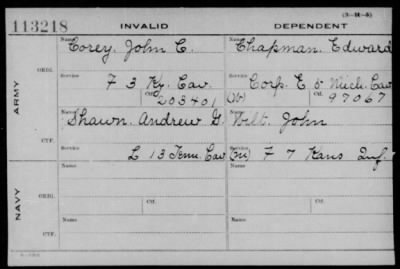 (3-H-5)
113218 INVALID DEPENDENT
Name Name
Corey, John C. Chapman, Edward
ARMY
ORIG.
Service Service
F 3 Ky. Cav. Corp. E 5 Mich. Cav
Ctf. Ctf.
203401 (W) 97067
Name
Shawn, Andrew G. Wilt, John
CTF.
Service
L 13 Tenn. Cav (M) F 7 Kans Inf.
NAVY
Name Name
ORIG.
Ctf. Ctf.
Name Name
CTF.